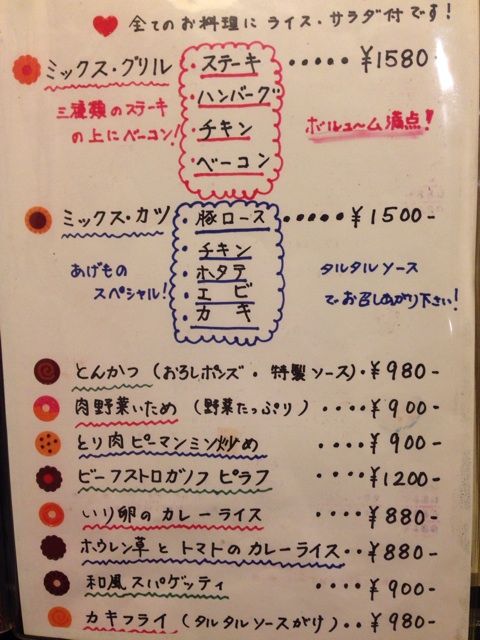 全てのお料理に ライス・サラダ付です!
ミックス・グリル ・ステーキ ・・・・・ ¥1580-
・ハンバーグ
三種類のステーキ
の上にベーコン!
・チキン
ボリューム満点!
・ベーコン
ミックス・カツ ・豚ロース ・・・・・ ¥1500-
・チキン
あげもの
スペシャル!
・ホタテ
タルタルソース
でお召しあがり下さい!
・エビ
・カキ
とんかつ (おろしポンズ・特製ソース)・¥980-
肉野菜いため (野菜たっぷり) ・・・・¥900-
とり肉ピーマンミン炒め ・・・・¥900-
ビーフストロガノフピラフ ・・・・¥1200-
いり卵のカレーライス ・・・・¥880-
ホウレン草とトマトのカレーライス・・¥880-
和風スパゲッティ ・・・・¥900-
カキフライ (タルタルソースがけ)・・¥980-